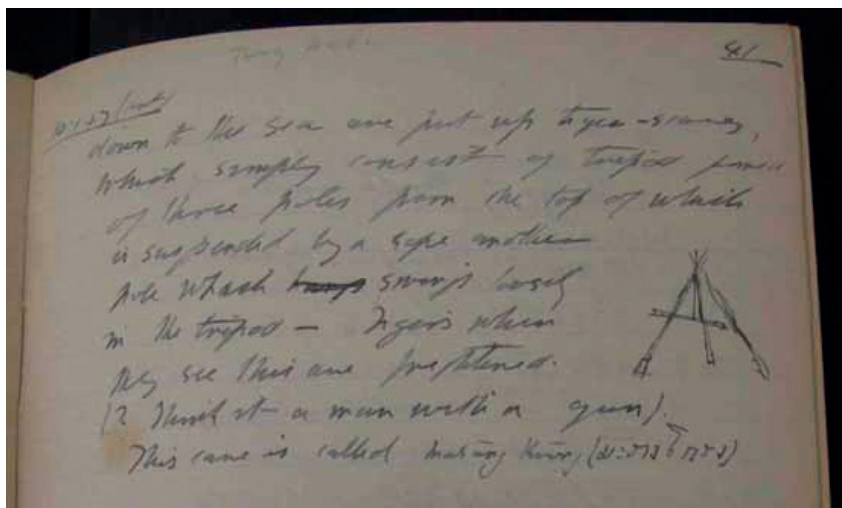 41
down to the sea are put up tiger-scarers,
which simply consist of tripod formed
of three poles from the top of which
is suspended by a rope another
pole which hangs swings loosely
in the tripod — Tigers when
they see this are frightened.
(? Think it a man with a gun).
This cave is called